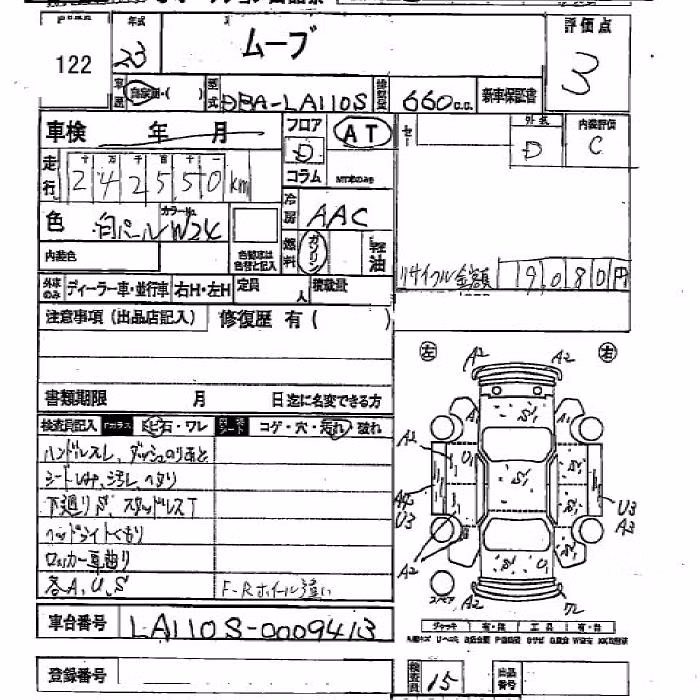 122
年式
23
ムーブ
評価点
3
車歴
自家用・( )
型式
DBA-LA110S
排気量
660c.c.
新車保証書
車検 年 月
フロア
D
コラム
AT
セー
外装
D
内装評価
C
走行
242550km
冷房
AAC
色
白パール
カラーNo.
W24
燃料
ガソリン
軽油
内装色
リサイクル金額 19080円
外車のみ
ディーラー車・並行車
右H・左H
定員
人
積載量
注意事項（出品店記入）
修復歴 有（ ）
書類期限 月 日迄に名変できる方
検査員記入
Fガラス
飛石・ワレ
コゲ・穴・汚れ・破れ
ハンドルスレ、ダッシュのりあと
シートしみ、汚レ、ヘタリ
下廻りS、スタッドレスT
ヘッドライトくもり
ロッカー耳曲り
各A,U,S
F-Rホイール違い
車台番号
LA110S-0009413
登録番号
検査員
15
出品番号
左
右
A2
A2
A1
A1
A2
U1
U3
U3
A3
A2
A2
スペア
ジャッキ
有・無
工具
有・無